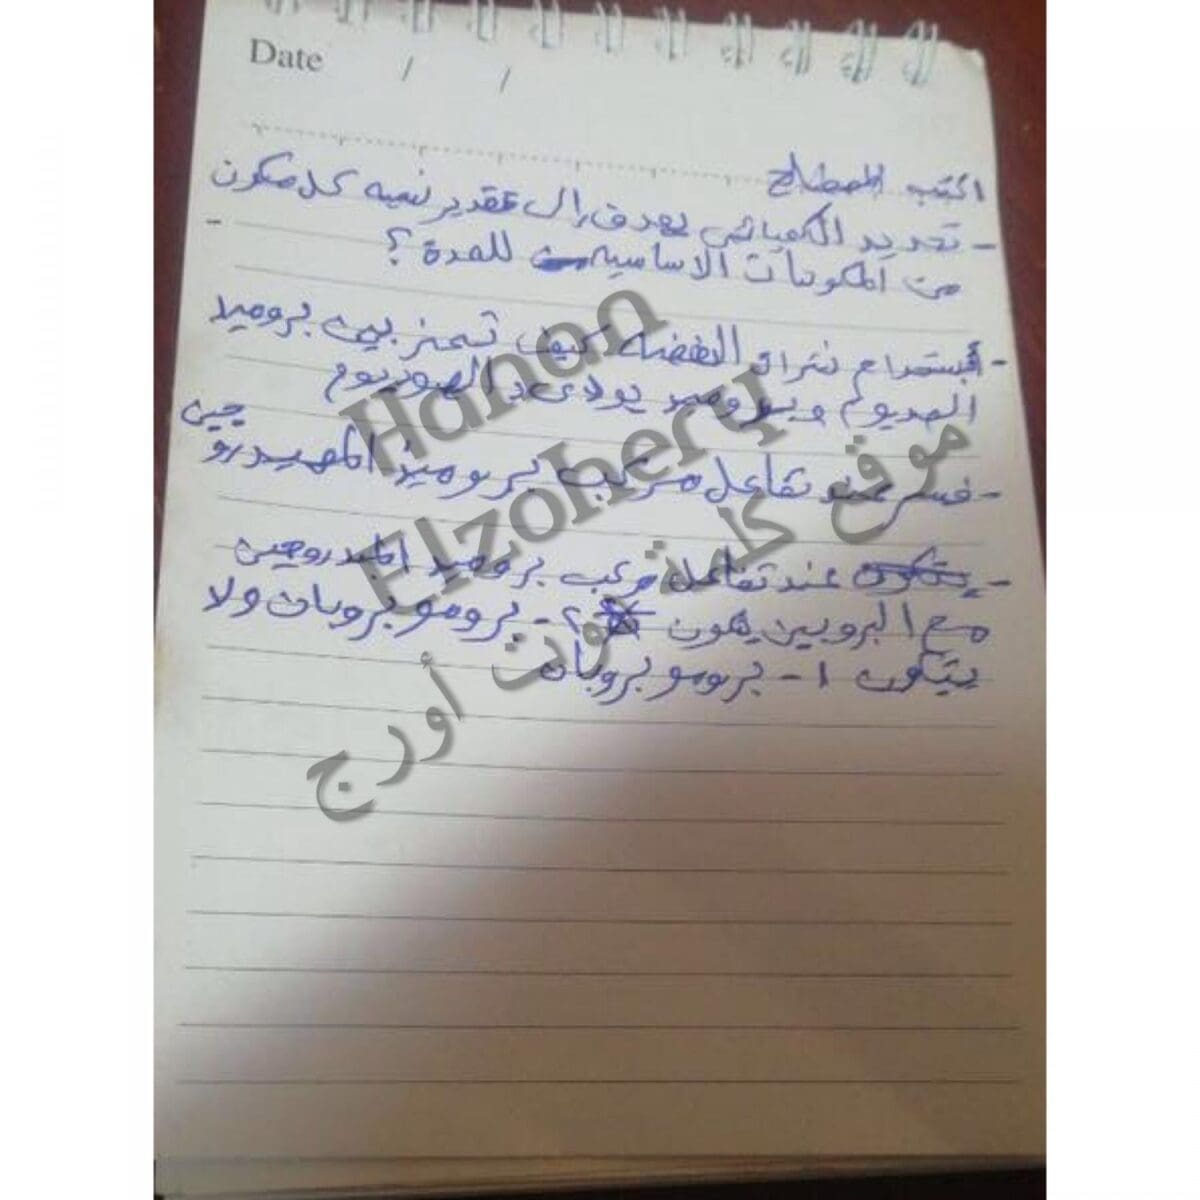 Date / /
اكتب المصطلح
- تحديد الكميائى يهدف إلى تقدير نسبه كل مكون
من المكونات الاساسيه للمدة ؟
- أبستخدام نترات الفضه كيف تميز بين بروميد
الصديوم ويوديد الصوديوم
- فسر عند تفاعل مركب بروميد الهيدروجين
- عند تفاعل مركب بروميد الهيدروجين
مع البروبين يكون ٢ - برومو بروبان ولا
يتكون ١ - برومو بروبان
Hanan
Elzohery
موقع كله توت أورج